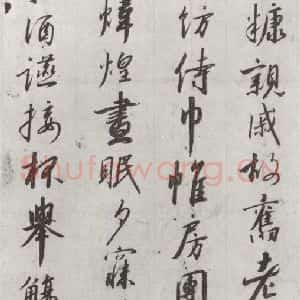 糠親戚故舊老
紡侍巾帷房團
煒煌晝眠夕寐
酒讌接杯舉觴